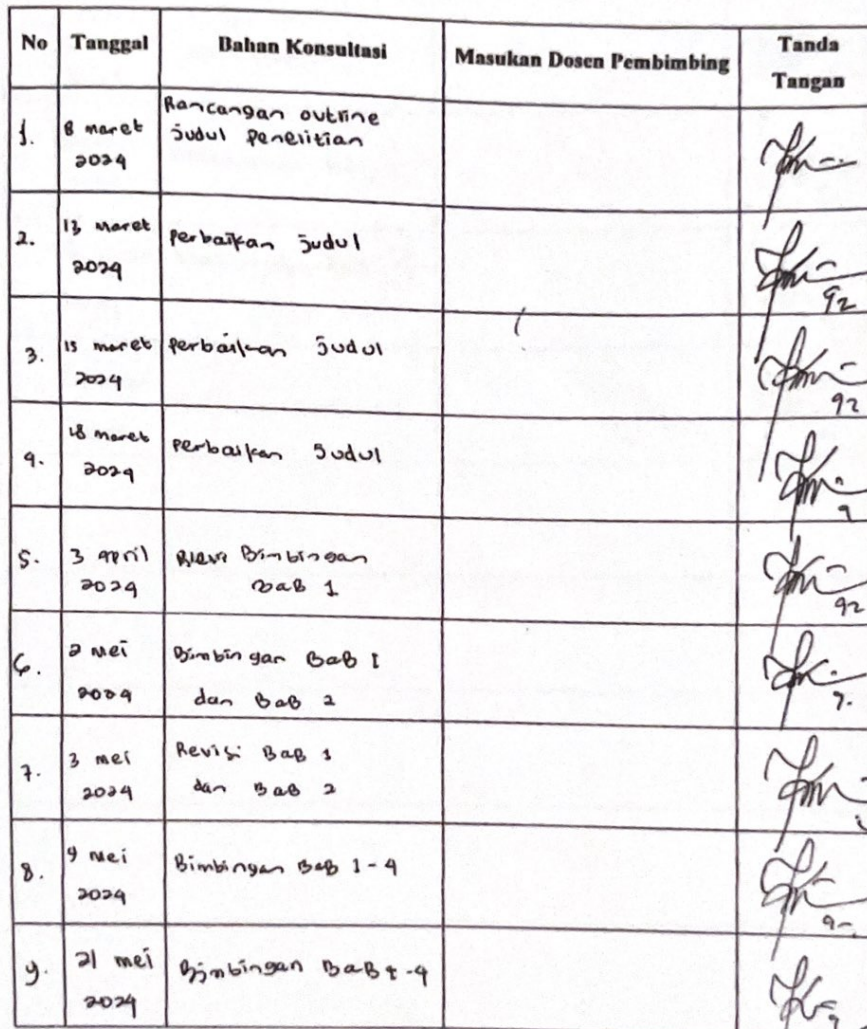 No Tanggal Bahan Konsultasi Masukan Dosen Pembimbing Tanda Tangan
1. 8 maret 2024 Rancangan outline judul penelitian
2. 13 maret 2024 perbaikan judul
3. 15 maret 2024 perbaikan judul
4. 18 maret 2024 perbaikan judul
5. 3 april 2024 Bimbingan BaB 1
6. 2 mei 2024 Bimbingan BaB I dan BaB 2
7. 3 mei 2024 Revisi BaB 1 dan BaB 2
8. 9 mei 2024 Bimbingan BaB 1-4
9. 21 mei 2024 Bimbingan BaB -4